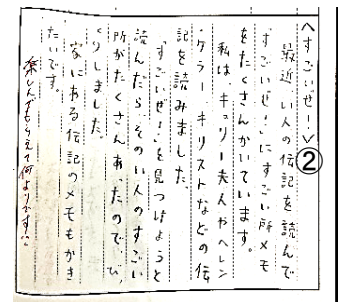 ＜すごいぜー＞
②
最近、い人の伝記を読んで
「すごいぜ！」にすごい所メモ
をたくさんかいています。
私は、キュリー夫人やヘレン
・ケラー、キリストなどの伝
記を読みました。
「すごいぜ！」を見つけようと
読んだら、そのい人のすごい
所がたくさんあったので、び
くりしました。
家にある伝記のメモもかき
たいです。
楽しんでもらえて何よりです!!